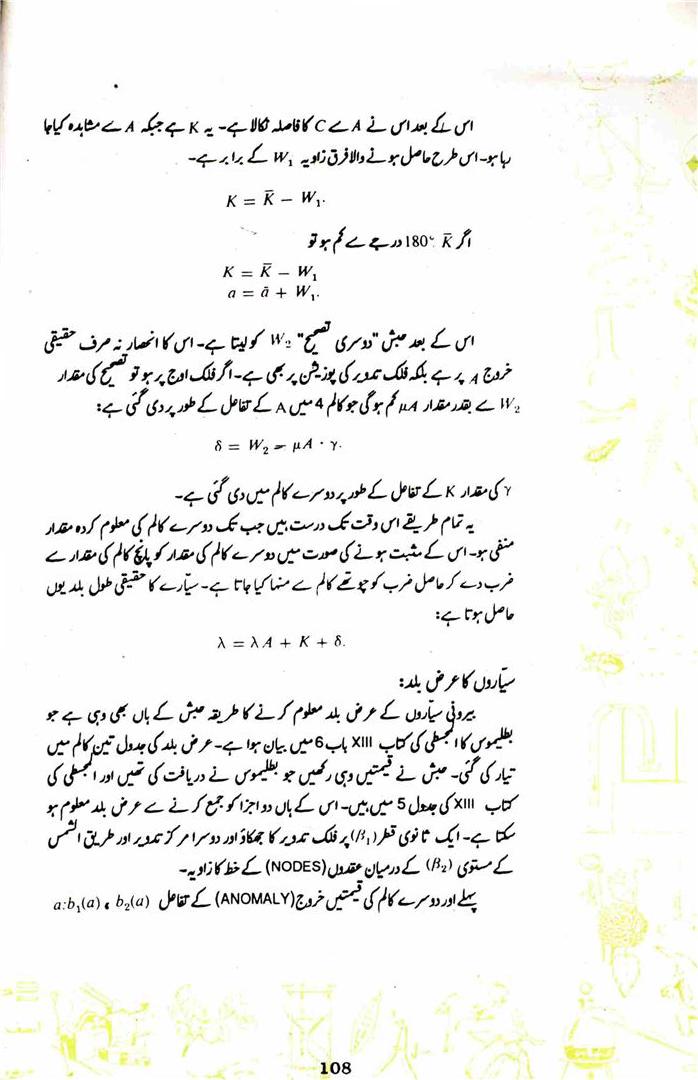 اس کے بعد اس نے A سے C کا فاصلہ نکالا ہے۔ یہ K ہے جبکہ A سے مشاہدہ کیا جا
رہا ہو۔ اس طرح حاصل ہونے والا فرق زاویہ W₁ کے برابر ہے۔
K = K̄ − W₁.
اگر K̄ 180° درجے سے کم ہو تو
K = K̄ − W₁
a = ā + W₁.
اس کے بعد حبش "دوسری تصحیح" W₂ کو لیتا ہے۔ اس کا انحصار نہ صرف حقیقی
خروج A پر ہے بلکہ فلک تدویر کی پوزیشن پر بھی ہے۔ اگر فلک اوج پر ہو تو تصحیح کی مقدار
W₂ سے بقدر مقدار μA کم ہو گی جو کالم 4 میں A کے تفاعل کے طور پر دی گئی ہے:
δ = W₂ − μA · γ.
γ کی مقدار K کے تفاعل کے طور پر دوسرے کالم میں دی گئی ہے۔
یہ تمام طریقے اس وقت تک درست ہیں جب تک دوسرے کالم کی معلوم کردہ مقدار
منفی ہو۔ اس کے مثبت ہونے کی صورت میں دوسرے کالم کی مقدار کو پانچ کالم کی مقدار سے
ضرب دے کر حاصل ضرب کو چوتھے کالم سے منہا کیا جاتا ہے۔ سیّارے کا حقیقی طول بلد یوں
حاصل ہوتا ہے:
λ = λA + K + δ.
سیّاروں کا عرض بلد:
بیرونی سیّاروں کے عرض بلد معلوم کرنے کا طریقہ حبش کے ہاں بھی وہی ہے جو
بطلیموس کا المجسطی کی کتاب XIII باب 6 میں بیان ہوا ہے۔ عرض بلد کی جدول تین کالم میں
تیار کی گئی۔ حبش نے قیمتیں وہی رکھیں جو بطلیموس نے دریافت کی تھیں اور المجسطی کی
کتاب XIII کی جدول 5 میں ہیں۔ اس کے ہاں دو اجزا کو جمع کرنے سے عرض بلد معلوم ہو
سکتا ہے۔ ایک ثانوی قطر (β₁) پر فلک تدویر کا جھکاؤ اور دوسرا مرکز تدویر اور طریق الشمس
کے مستوی (β₂) کے درمیان عقدوں (NODES) کے خط کا زاویہ۔
پہلے اور دوسرے کالم کی قیمتیں خروج (ANOMALY) کے تفاعل a:b₁(a) ، b₂(a)
108